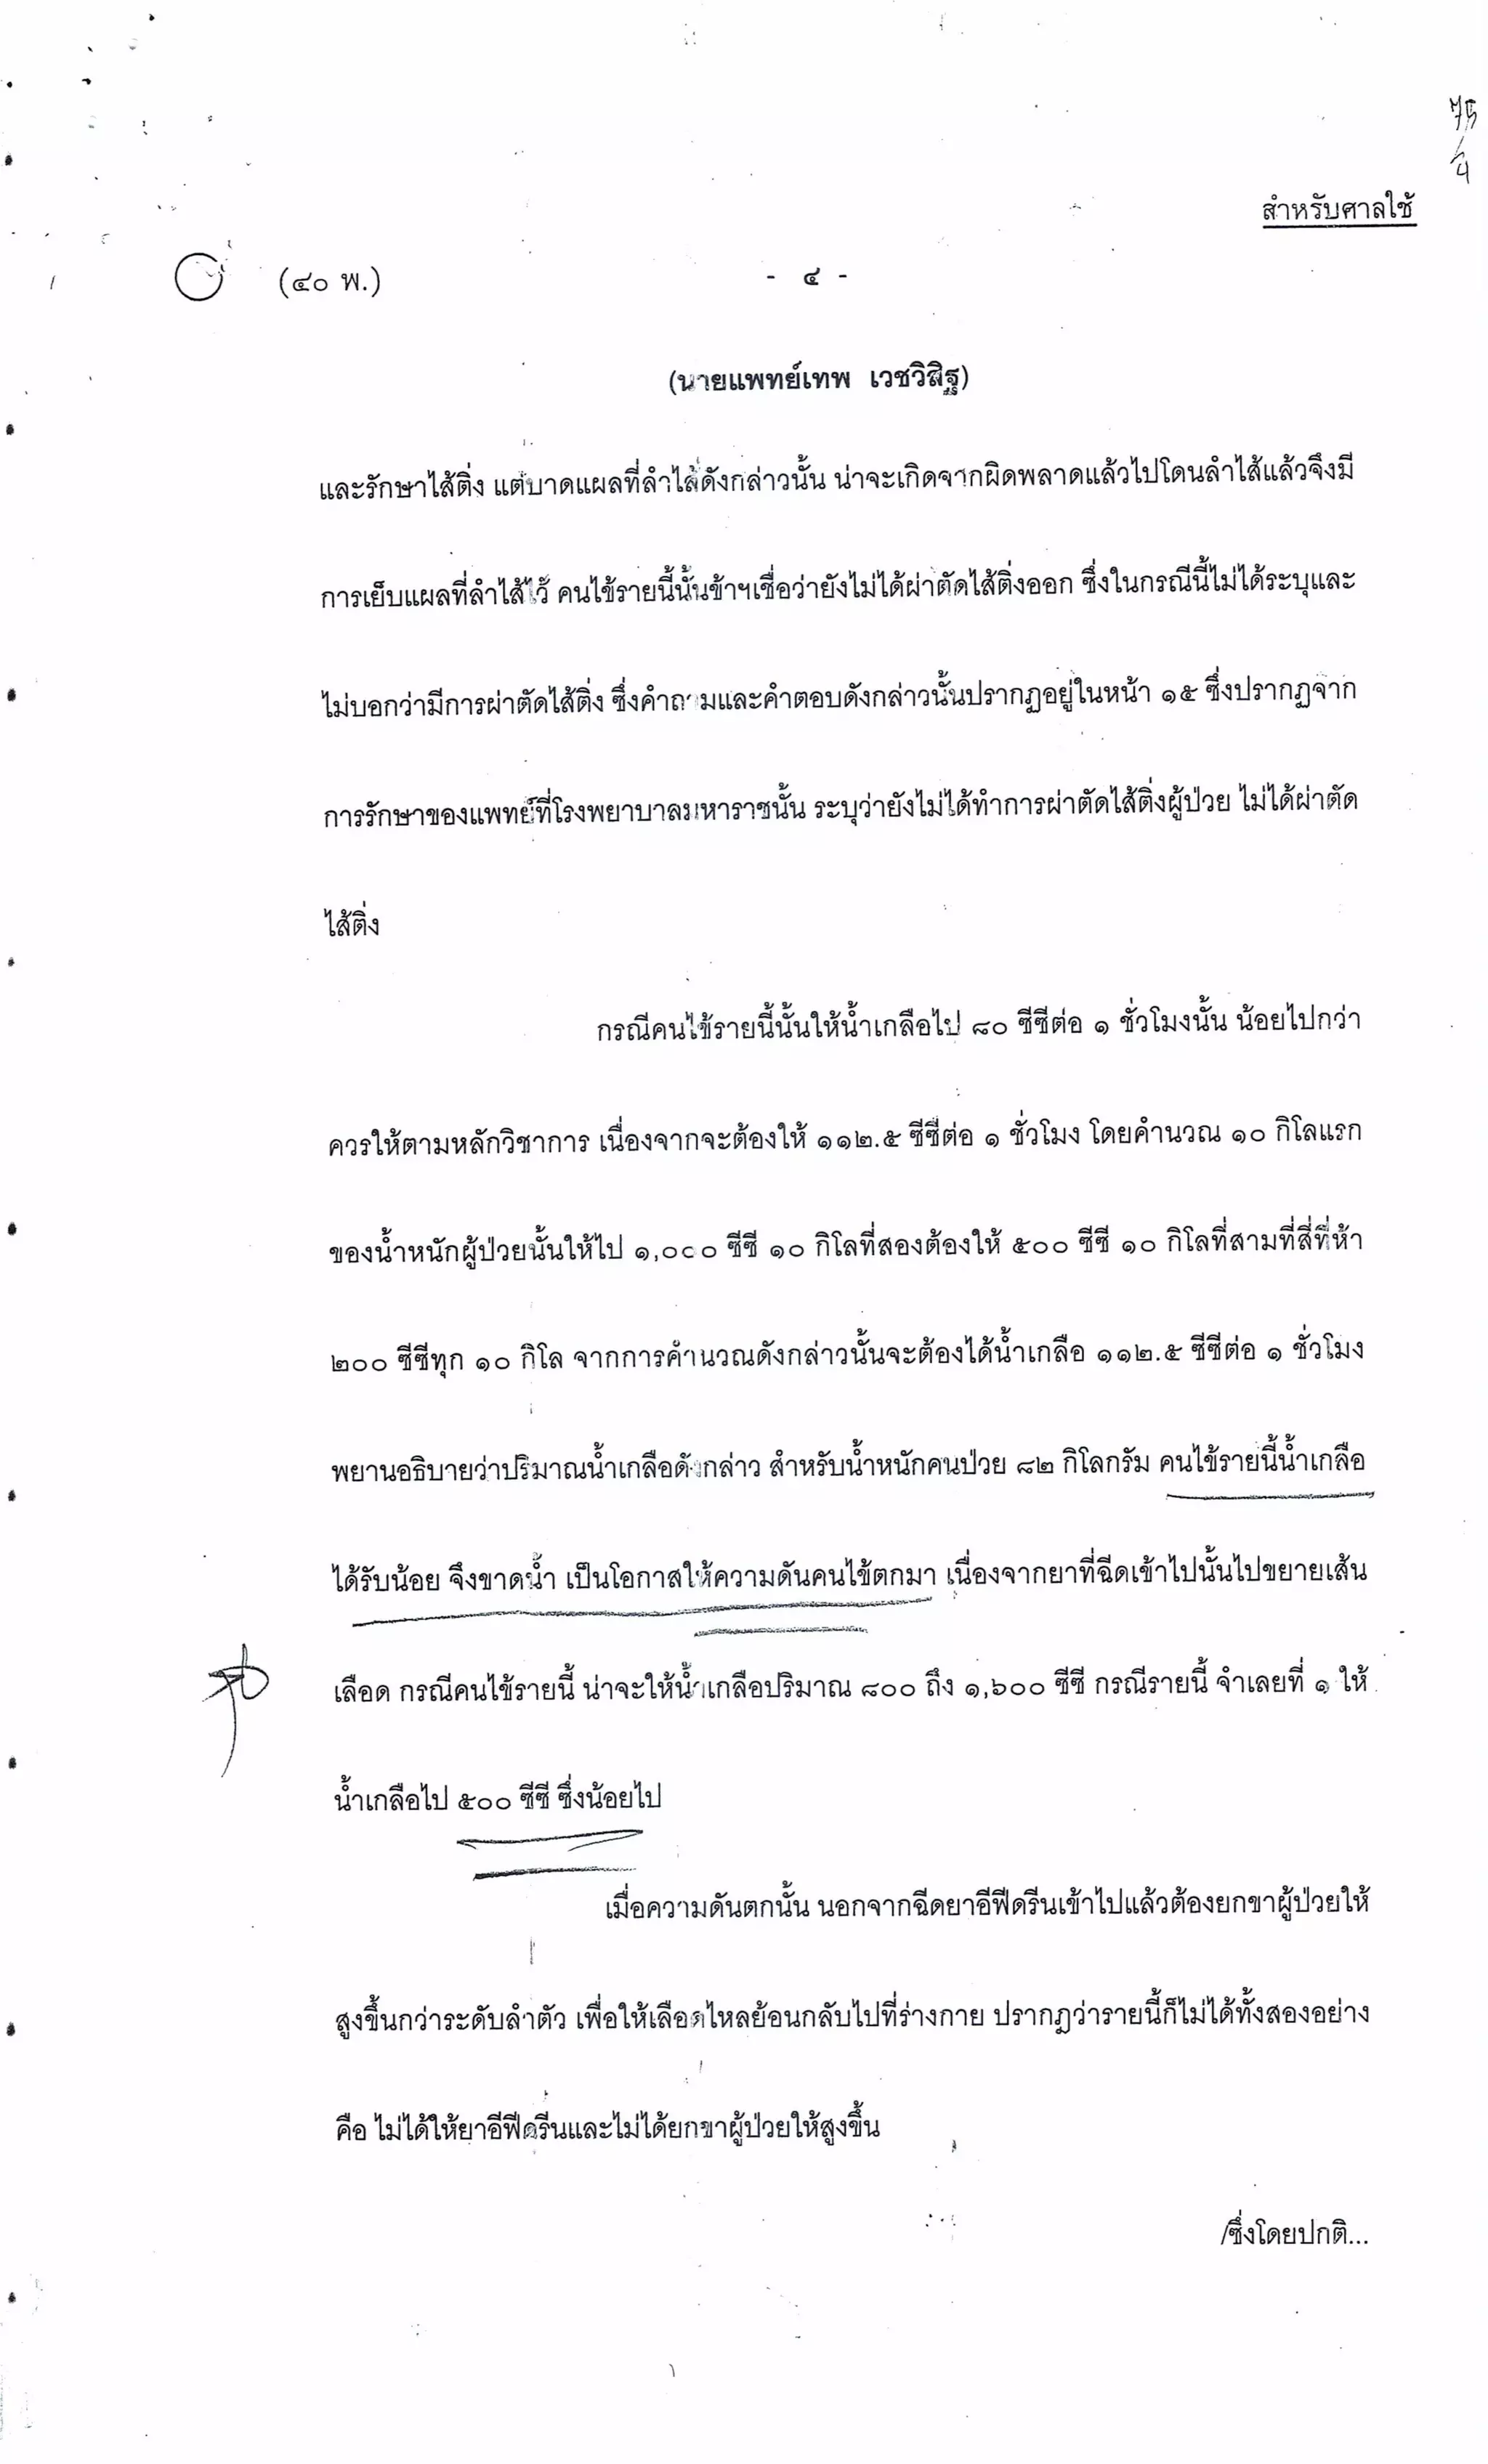 สำหรับศาลใช้
(๔๐ พ.)
- ๔ -
(นายแพทย์เทพ เวชวิสิฐ)
และรักษาไส้ติ่ง แต่บาดแผลที่ลำไส้ดังกล่าวนั้น น่าจะเกิดจากผิดพลาดแล้วไปโดนลำไส้แล้วจึงมี
การเย็บแผลที่ลำไส้ไว้ คนไข้รายนี้นั้นข้าฯเชื่อว่ายังไม่ได้ผ่าตัดไส้ติ่งออก ซึ่งในกรณีนี้ไม่ได้ระบุและ
ไม่บอกว่ามีการผ่าตัดไส้ติ่ง ซึ่งคำถามและคำตอบดังกล่าวนั้นปรากฏอยู่ในหน้า ๑๕ ซึ่งปรากฏจาก
การรักษาของแพทย์ที่โรงพยาบาลมหาราชนั้น ระบุว่ายังไม่ได้ทำการผ่าตัดไส้ติ่งผู้ป่วย ไม่ได้ผ่าตัด
ไส้ติ่ง
กรณีคนไข้รายนี้นั้นให้น้ำเกลือไป ๘๐ ซีซีต่อ ๑ ชั่วโมงนั้น น้อยไปกว่า
ควรให้ตามหลักวิชาการ เนื่องจากจะต้องให้ ๑๑๒.๕ ซีซีต่อ ๑ ชั่วโมง โดยคำนวณ ๑๐ กิโลแรก
ของน้ำหนักผู้ป่วยนั้นให้ไป ๑,๐๐๐ ซีซี ๑๐ กิโลที่สองต้องให้ ๕๐๐ ซีซี ๑๐ กิโลที่สามที่สี่ที่ห้า
๒๐๐ ซีซีทุก ๑๐ กิโล จากการคำนวณดังกล่าวนั้นจะต้องได้น้ำเกลือ ๑๑๒.๕ ซีซีต่อ ๑ ชั่วโมง
พยานอธิบายว่าปริมาณน้ำเกลือดังกล่าว สำหรับน้ำหนักคนป่วย ๘๒ กิโลกรัม คนไข้รายนี้น้ำเกลือ
ได้รับน้อย จึงขาดน้ำ เป็นโอกาสให้ความดันคนไข้ตกมา เนื่องจากยาที่ฉีดเข้าไปนั้นไปขยายเส้น
เลือด กรณีคนไข้รายนี้ น่าจะให้น้ำเกลือปริมาณ ๘๐๐ ถึง ๑,๖๐๐ ซีซี กรณีรายนี้ จำเลยที่ ๑ ให้
น้ำเกลือไป ๕๐๐ ซีซี ซึ่งน้อยไป
เมื่อความดันตกนั้น นอกจากฉีดยาอีฟีดรีนเข้าไปแล้วต้องยกขาผู้ป่วยให้
สูงขึ้นกว่าระดับลำตัว เพื่อให้เลือดไหลย้อนกลับไปที่ร่างกาย ปรากฏว่ารายนี้ก็ไม่ได้ทั้งสองอย่าง
คือ ไม่ได้ให้ยาอีฟีดรีนและไม่ได้ยกขาผู้ป่วยให้สูงขึ้น
/ซึ่งโดยปกติ...